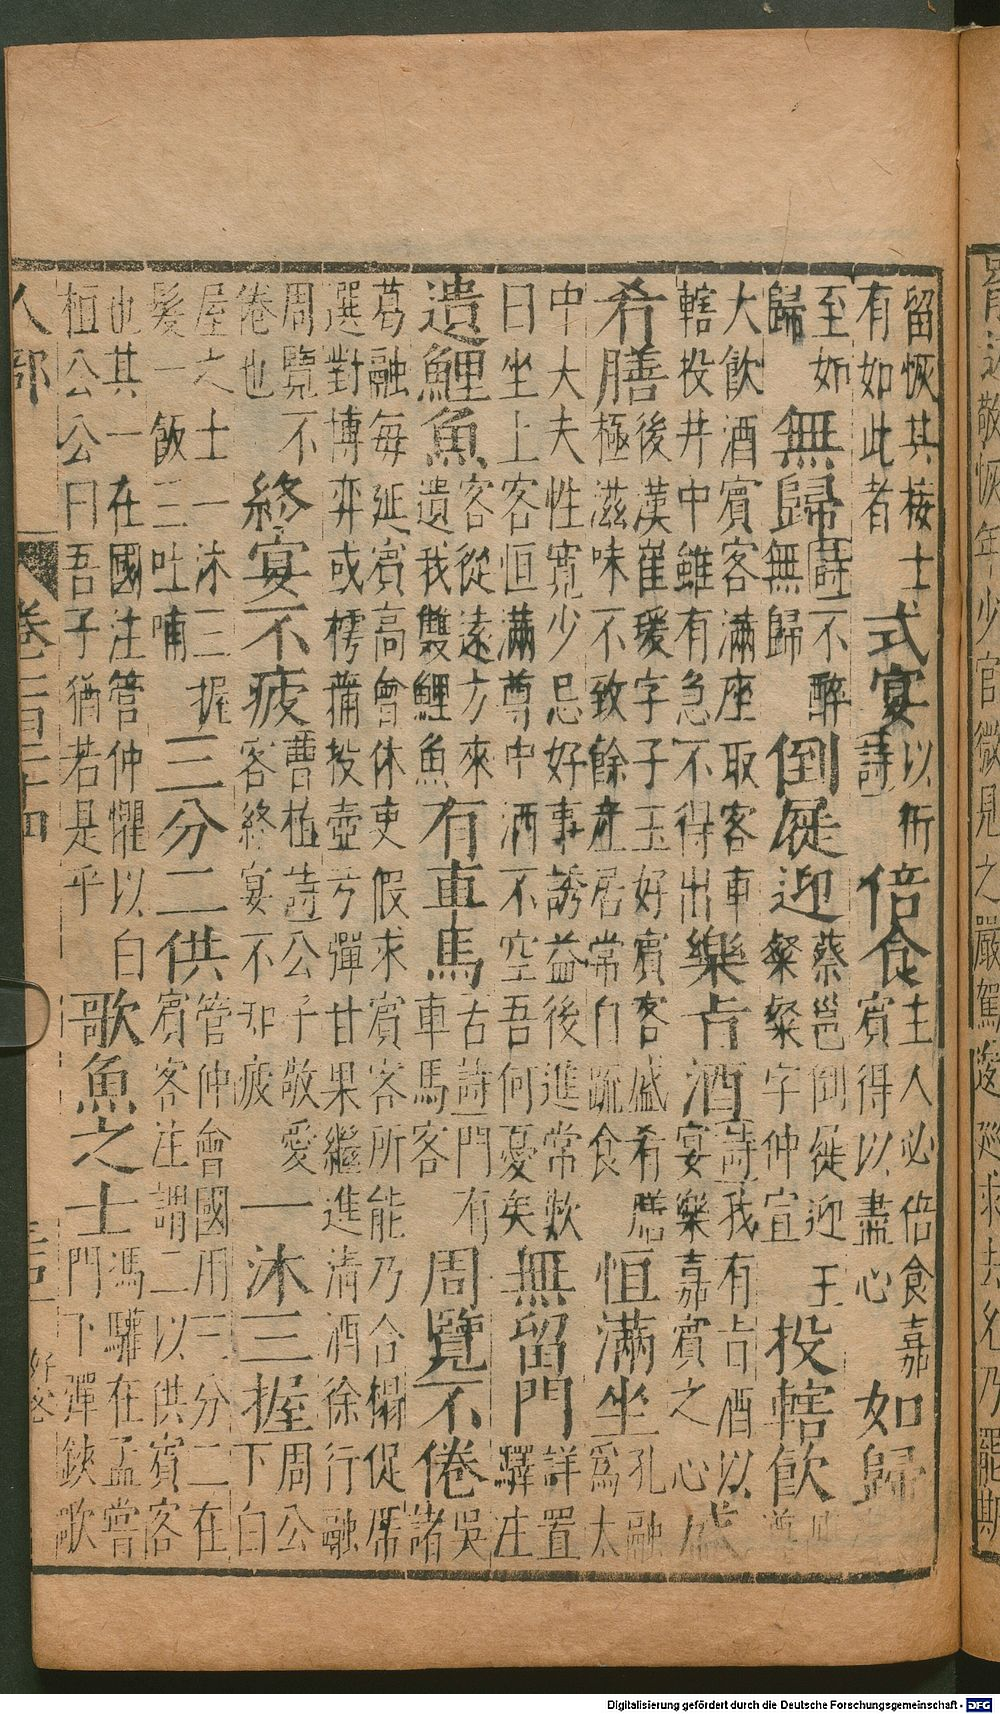 留恢其接士有如此者式宴以衎詩倍食主人必倍食嘉賓得以盡心如歸
至如歸無歸詩不醉無歸倒屣迎蔡邕倒屣迎王粲粲字仲宣投轄飲
大飲酒賓客滿座取客車轄投井中雖有急不得出樂旨酒詩我有旨酒以宴樂嘉賓之心盛
希膳後漢崔瑗字子玉好賓客盛肴膳極滋味不致餘產居常自疏食恒滿坐孔融為太
中大夫性寬少忌好事誘益後進常歎曰坐上客恒滿尊中酒不空吾何憂矣無留門詳置驛注
遺鯉魚客從遠方來遺我雙鯉魚有車馬古詩門有車馬客周覽不倦吳諸
葛融每延賓高會休吏假求賓客所能乃合榻促席選對博弈或樗蒲投壺弓彈甘果繼進清酒徐行融
周覽不倦也終宴不疲曹植詩公子敬愛客終宴不知疲一沐三握周公下白
屋之士一沐三握髮一飯三吐哺三分二供管仲會國用三分二在賓客注謂二以供賓客
也其一在國注管仲懼以白桓公公曰吾子猶若是乎歌魚之士馮驩在孟嘗門下彈鋏歌
人部 卷二百三十四 好客
敬恢年少官微見之嚴駕逡巡求去
Digitalisierung gefördert durch die Deutsche Forschungsgemeinschaft - DFG